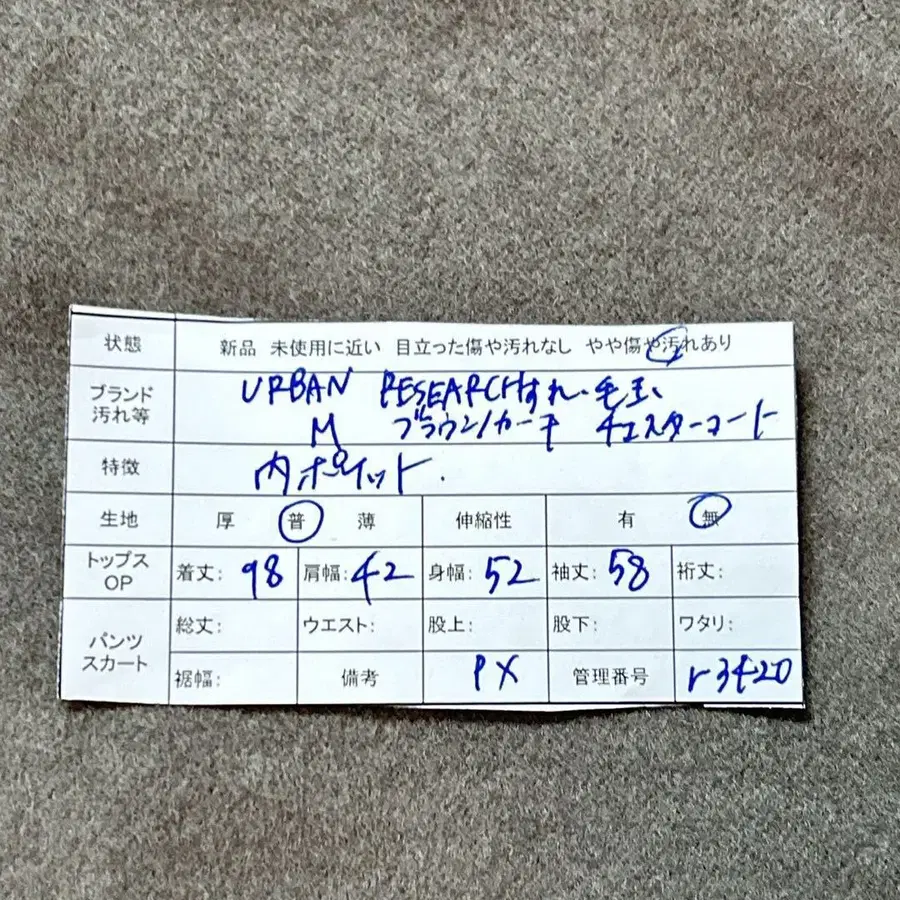 状態 新品 未使用に近い 目立った傷や汚れなし やや傷や汚れあり
ブランド 汚れ等 URBAN RESEARCH すれ、毛玉、
M ブラウン/カーキ チェスターコート
特徴 内ポケット.
生地 厚 普 薄 伸縮性 有 無
トップス OP 着丈: 98 肩幅: 42 身幅: 52 袖丈: 58 裄丈:
パンツ スカート 総丈: ウエスト: 股上: 股下: ワタリ:
裾幅: 備考 PX 管理番号 r3420